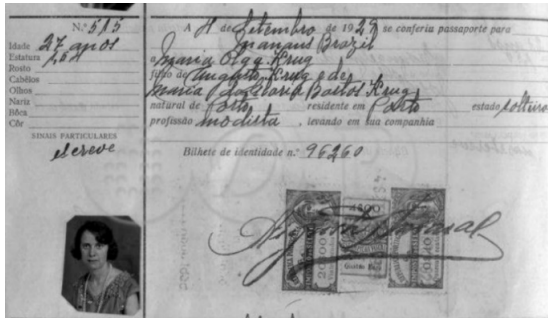 N.º 515
Idade 27 anos
Estatura 1,54
Rosto
Cabêlos
Olhos
Nariz
Bôca
Côr
SINAIS PARTICULARES
escreve
A 4 de Setembro de 1929 se conferiu passaporte para
Manaus Brazil
a Maria Olga Krug
filho de Augusto Krug e de
Maria da Gloria Bastos Krug
natural de Porto residente em Porto estado solteira
profissão modista , levando em sua companhia
Bilhete de identidade n.º 96260